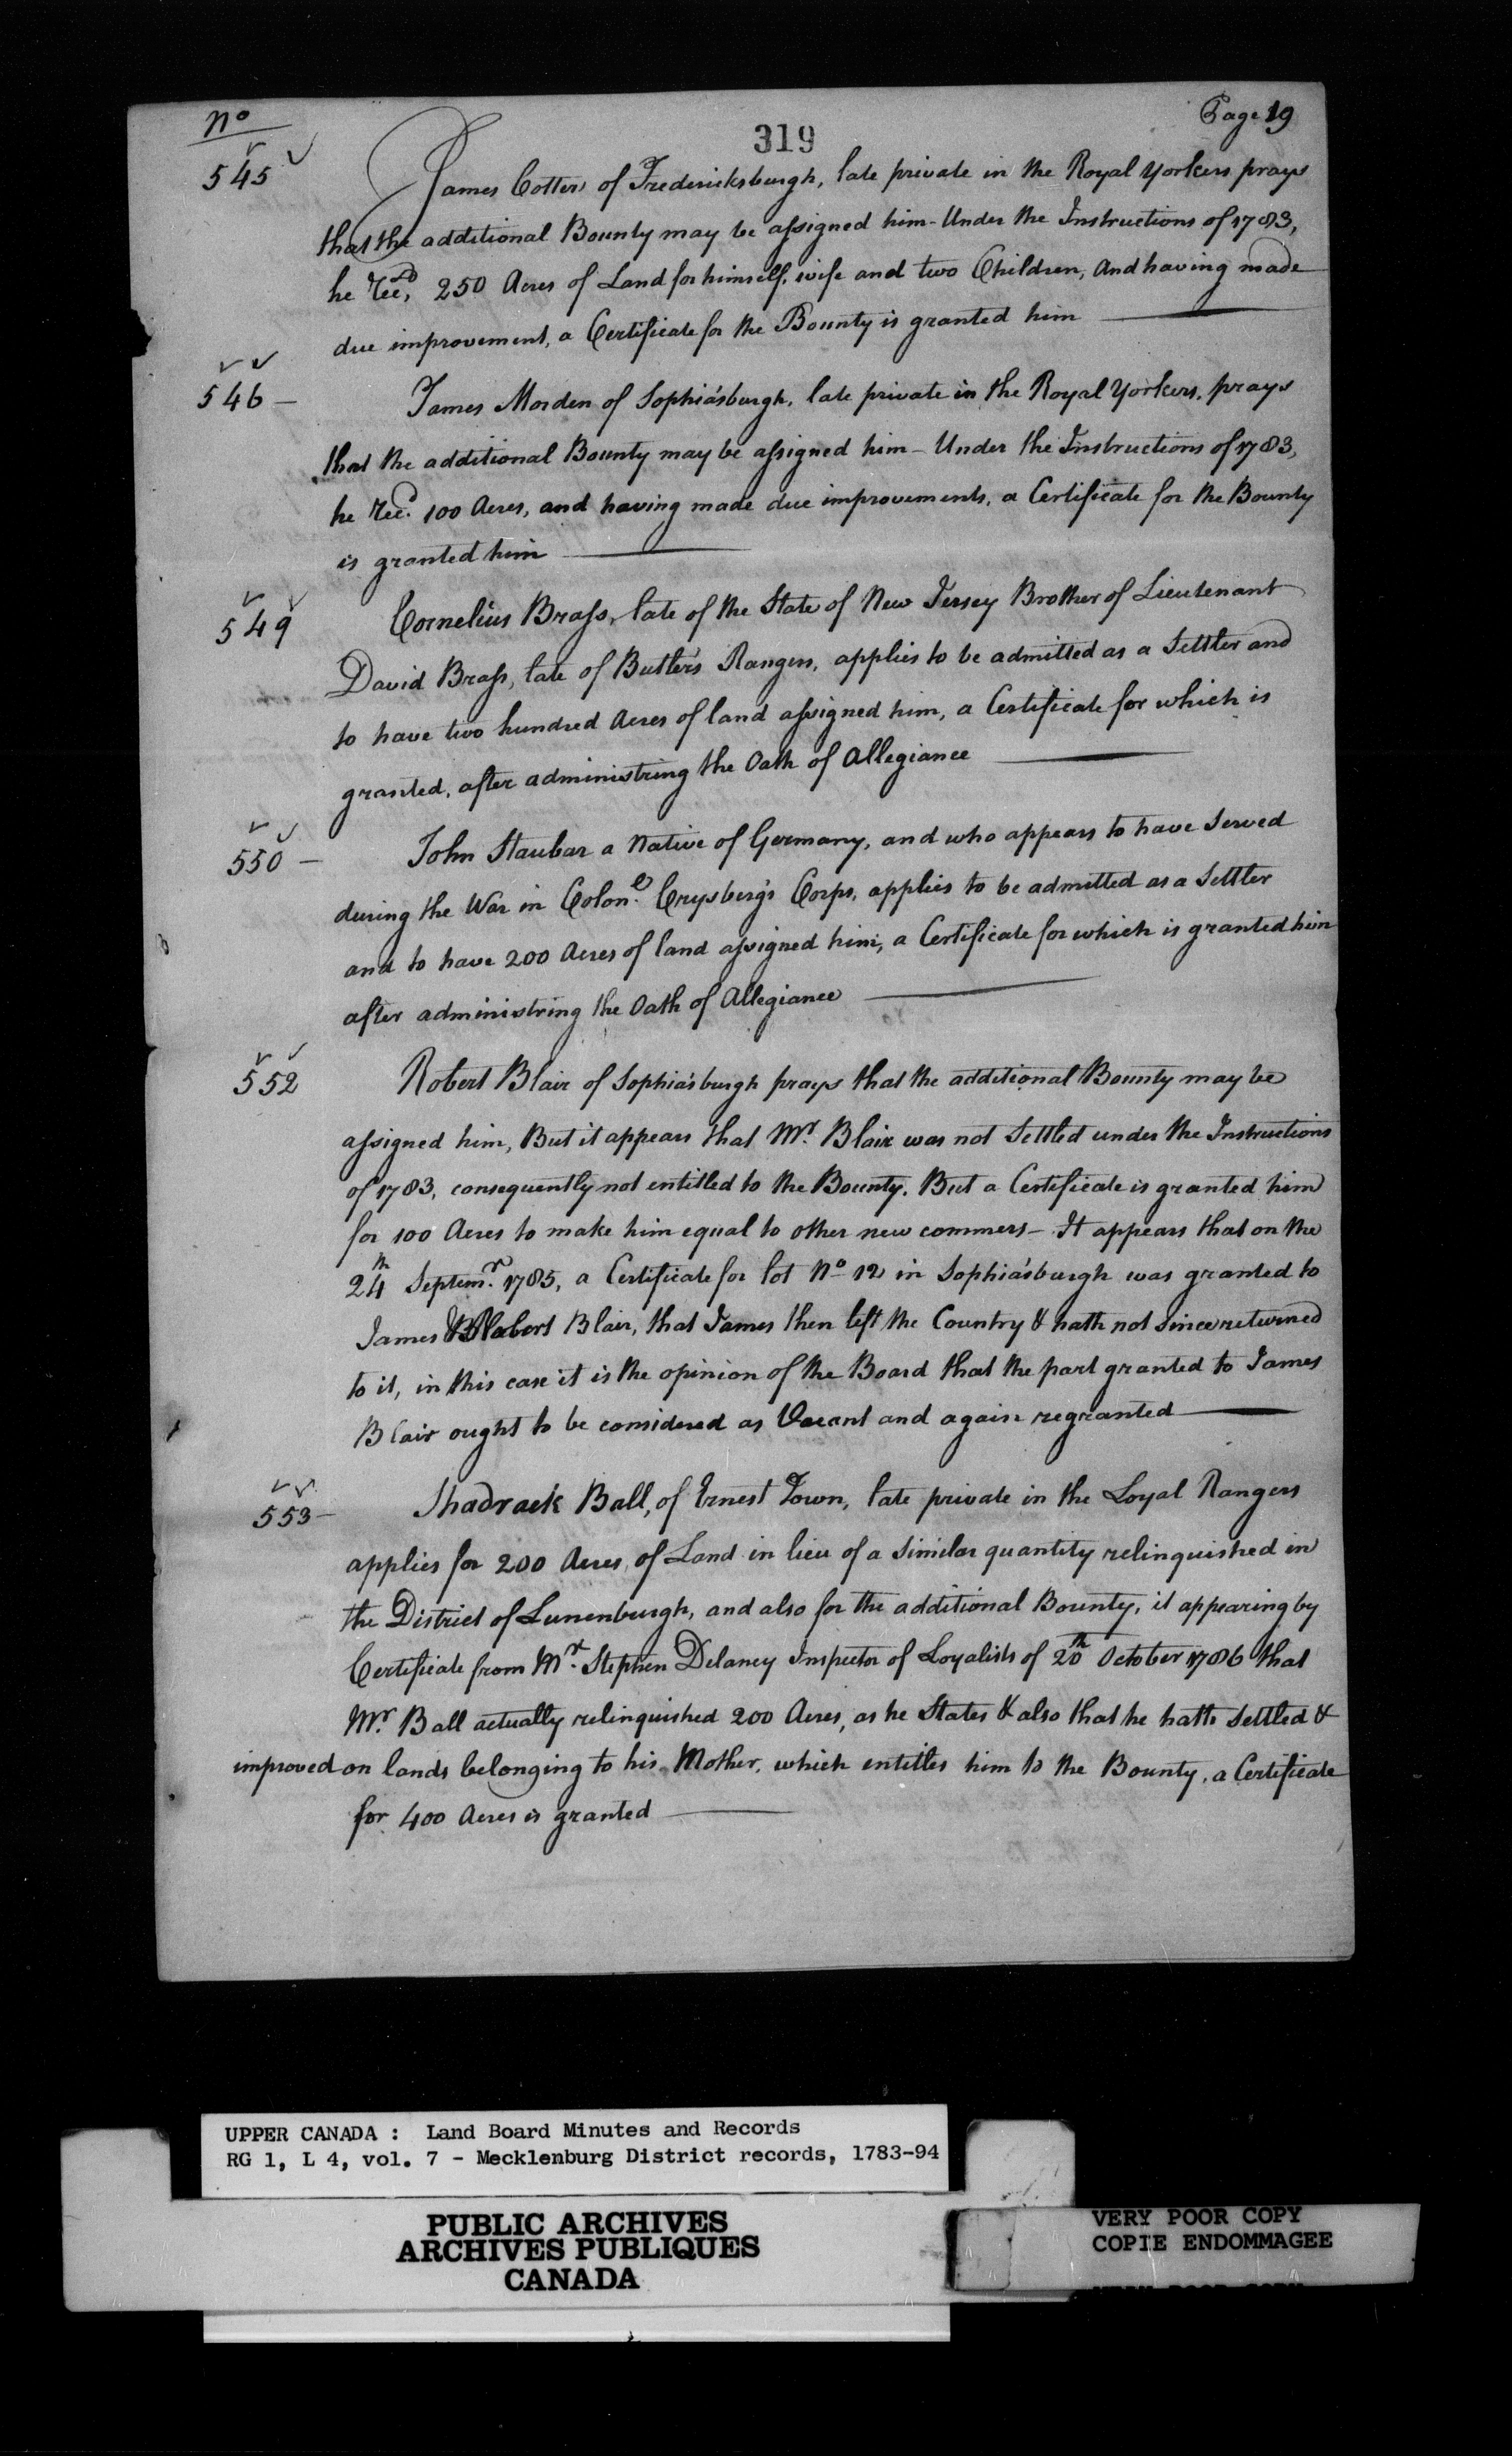 No
319
Page 19
545
James Cotter of Fredericksburgh, late private in the Royal Yorkers, prays
that the additional Bounty may be assigned him - Under the Instructions of 1783,
he Recd, 250 Acres of Land for himself, wife and two Children, And having made
due improvement, a Certificate for the Bounty is granted him
546 -
James Morden of Sophia'sburgh, late private in the Royal Yorkers, prays
that the additional Bounty may be assigned him - Under the Instructions of 1783,
he Recd. 100 Acres, and having made due improvements, a Certificate for the Bounty
is granted him
549
Cornelius Brass, late of the State of New Jersey Brother of Lieutenant
David Brass, late of Butler's Rangers, applies to be admitted as a Settler and
to have two hundred Acres of land assigned him, a Certificate for which is
granted, after administring the Oath of Allegiance
550 -
John Staubar a Native of Germany, and who appears to have Served
during the War in Colone. Crysberg's Corps, applies to be admitted as a Settler
and to have 200 Acres of land assigned him, a Certificate for which is granted him
after administring the Oath of Allegiance
552
Robert Blair of Sophia'sburgh prays that the additional Bounty may be
assigned him, But it appears that Mr. Blair was not Settled under the Instructions
of 1783, consequently not entitled to the Bounty. But a Certificate is granted him
for 100 Acres to make him equal to other new commers - It appears that on the
24th Septemr. 1785, a Certificate for lot No 12 in Sophia'sburgh was granted to
James & Robert Blair, that James then left the Country & hath not Since returned
to it, in this case it is the opinion of the Board that the part granted to James
Blair ought to be considered as Vacant and again regranted
553 -
Shadrack Ball, of Ernest Town, late private in the Loyal Rangers
applies for 200 Acres of Land in lieu of a Similar quantity relinquished in
the District of Lunenburgh, and also for the additional Bounty, it appearing by
Certificate from Mr. Stephen Delancy Inspector of Loyalists of 20th October 1786 that
Mr. Ball actually relinquished 200 Acres, as he States & also that he hath Settled &
improved on lands belonging to his Mother, which entitles him to the Bounty, a Certificate
for 400 Acres is granted
UPPER CANADA : Land Board Minutes and Records
RG 1, L 4, vol. 7 - Mecklenburg District records, 1783-94
PUBLIC ARCHIVES
ARCHIVES PUBLIQUES
CANADA
VERY POOR COPY
COPIE ENDOMMAGEE